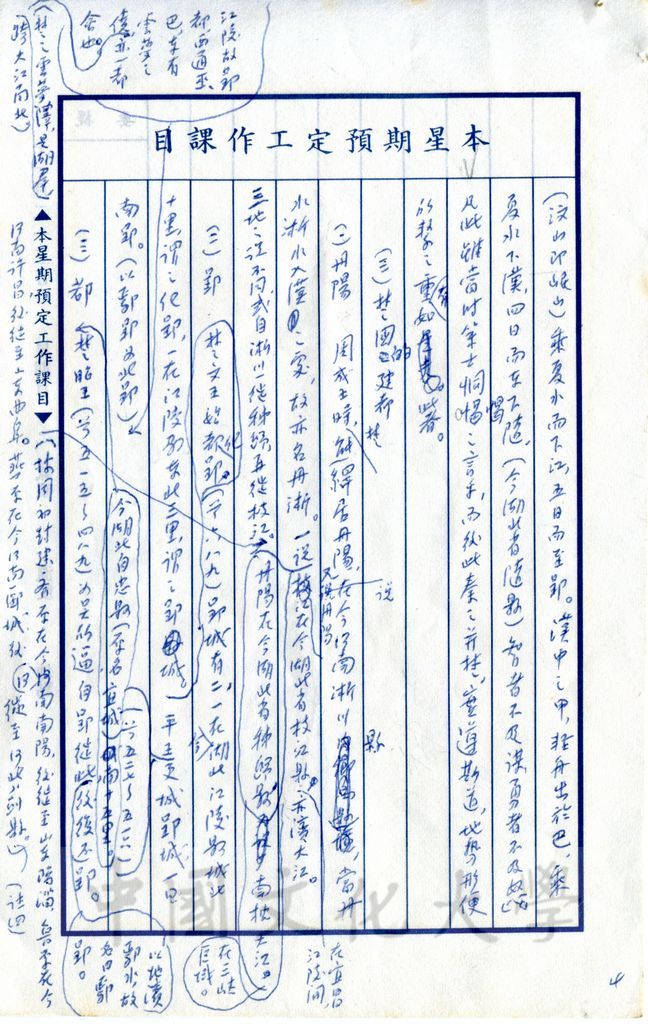 本星期預定工作課目
(汶山即岷山)乘夏水而下江,五日而至郢。漢中之甲,輕舟出於巴,乘
夏水下漢,四日而至下隨,(今湖北省隨縣)智者不及謀,勇者不及怒
凡此雖當時策士恫愒之言乎,而後此秦之并楚,實遵斯道,地勢形便
所繫之重,有如此者。
(三)楚國的建都
(1)丹陽 周成王時,熊繹居丹陽,在今河南淅川縣,當丹
水淅水入漢之處,故亦名丹淅。一說枝江在今湖北省枝江縣,亦濱大江。
三地之說不同,或自淅川徙秭歸再徙枝江。
又說丹陽在今湖北省秭歸縣
南枕大江
在宜昌
江陵間,
在三峽
區域。
(二)郢 楚文王始都郢。(前六八九)郢城有二,一在湖北江陵縣城北
十里謂之紀郢,一在江陵縣東北三里,謂之郢城。平王更城郢城,一曰
南郢。(以鄢郢為北郢)
(三)鄀 楚昭王(前五一五~四八九)為吳所逼自郢徙此,後復還郢。
今湖北自忠縣(原名宜城)
以地濱
鄢水故
名曰鄢
郢。
江陵故郢
都西通巫
巴,東有
雲夢之
饒,亦一都
會也。
(楚之雲夢澤,是湖羣
跨大江南北)
▲本星期預定工作課目▼
河南許昌後徙至山東曲阜。燕原在今河南郾城後徙至河北薊縣。(註四)
4
中國文化大學